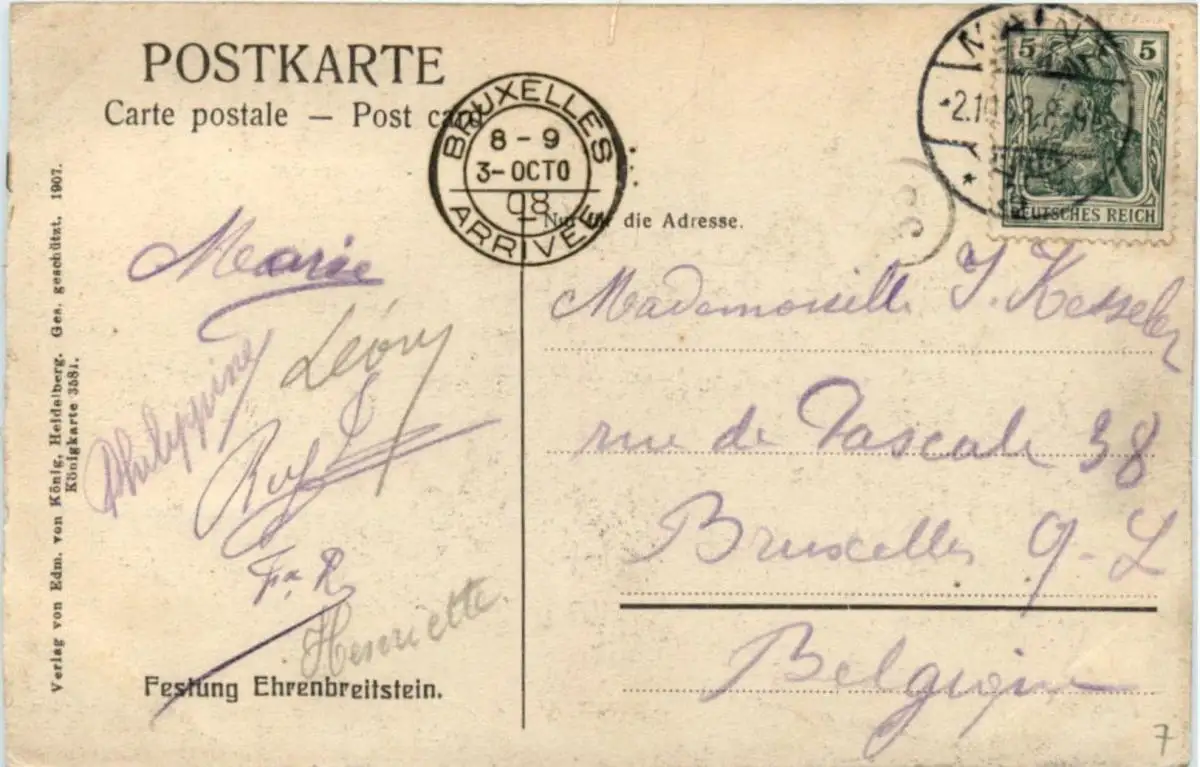 POSTKARTE
Carte postale — Post card
BRUXELLES
8-9
3-OCTO
08
ARRIVÉE
5 5
DEUTSCHES REICH
Nur für die Adresse.
Verlag von Edm. von König, Heidelberg. Ges. geschützt. 1907.
Königkarte 3581.
Marie
Philippine
Léony
Henriette.
Festung Ehrenbreitstein.
Mademoiselle J. Kesseler
rue de Pascale 38
Bruxelles Q-L
Belgique
7